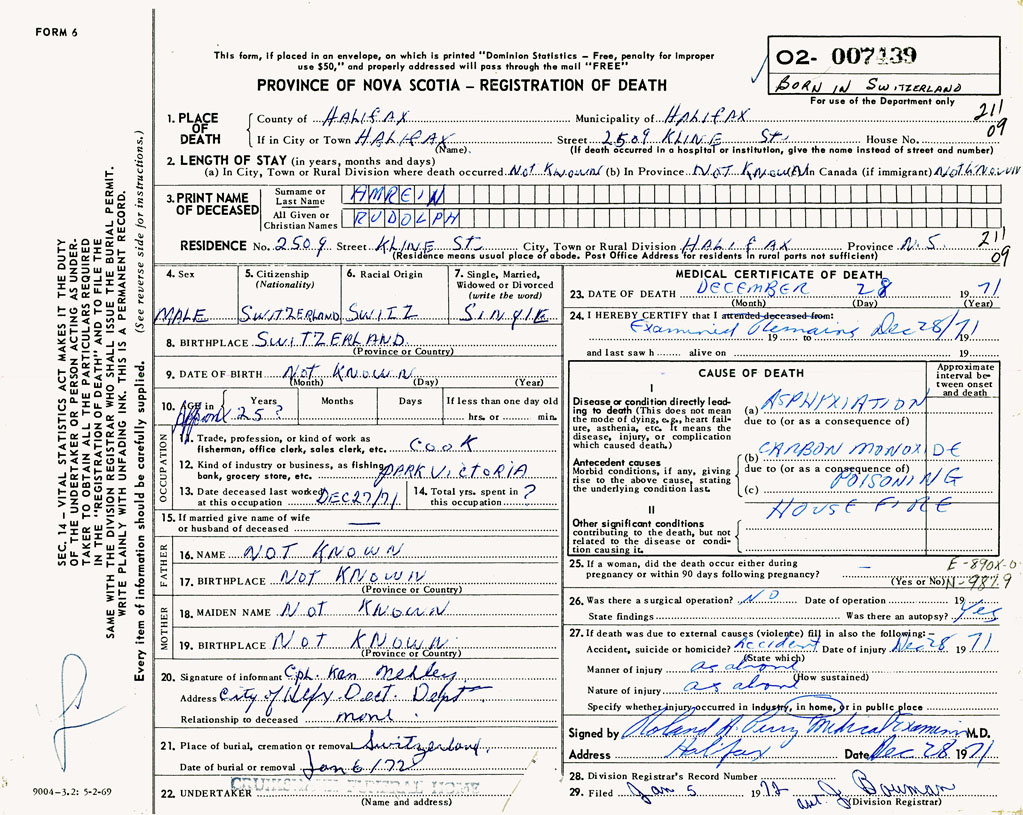 FORM 6
This form, if placed in an envelope, on which is printed "Dominion Statistics – Free, penalty for improper
use $50," and properly addressed will pass through the mail "FREE"
PROVINCE OF NOVA SCOTIA – REGISTRATION OF DEATH
02- 007439
BORN IN SWITZERLAND
For use of the Department only
211
09
1. PLACE OF DEATH
County of HALIFAX Municipality of HALIFAX
If in City or Town HALIFAX Street 2509 KLINE St. House No.
(Name). (If death occurred in a hospital or institution, give the name instead of street and number)
2. LENGTH OF STAY (in years, months and days)
(a) In City, Town or Rural Division where death occurred Not Known (b) In Province NOT KNOWN In Canada (if immigrant) Not Known
3. PRINT NAME OF DECEASED
Surname or Last Name AMREIN
All Given or Christian Names RUDOLPH
RESIDENCE No. 2509 Street KLINE St. City, Town or Rural Division HALIFAX Province N.S
211
09
(Residence means usual place of abode. Post Office Address for residents in rural parts not sufficient)
4. Sex
MALE
5. Citizenship
(Nationality)
SWITZERLAND
6. Racial Origin
SWITZ
7. Single, Married,
Widowed or Divorced
(write the word)
SINGLE
8. BIRTHPLACE SWITZERLAND
(Province or Country)
9. DATE OF BIRTH NOT KNOWN
(Month) (Day) (Year)
10. AGE in Years Months Days If less than one day old
Approx 25? hrs. or min.
OCCUPATION
11. Trade, profession, or kind of work as
fisherman, office clerk, sales clerk, etc. COOK
12. Kind of industry or business, as fishing,
bank, grocery store, etc. PARK VICTORIA
13. Date deceased last worked
at this occupation DEC 27/71
14. Total yrs. spent in
this occupation ?
15. If married give name of wife
or husband of deceased —
FATHER
16. NAME NOT KNOWN
17. BIRTHPLACE Not KNOWN
(Province or Country)
MOTHER
18. MAIDEN NAME Not KNOWN
19. BIRTHPLACE NOT KNOWN
(Province or Country)
20. Signature of informant Cpl. Ken
Address City of Hlfx Dept
Relationship to deceased none
21. Place of burial, cremation or removal Switzerland
Date of burial or removal Jan 6/72
22. UNDERTAKER FUNERAL HOME
(Name and address)
MEDICAL CERTIFICATE OF DEATH
23. DATE OF DEATH DECEMBER 28 1971
(Month) (Day) (Year)
24. I HEREBY CERTIFY that I attended deceased from:
Examined Remains Dec 28/71
19 to 19
and last saw h alive on 19
CAUSE OF DEATH
Approximate
interval be-
tween onset
and death
I
Disease or condition directly lead-
ing to death (This does not mean
the mode of dying, e.g., heart fail-
ure, asthenia, etc. It means the
disease, injury, or complication
which caused death.)
(a) ASPHYXIATION
due to (or as a consequence of)
Antecedent causes
Morbid conditions, if any, giving
rise to the above cause, stating
the underlying condition last.
(b) CARBON MONOXIDE
due to (or as a consequence of)
(c) POISONING
HOUSE FIRE
II
Other significant conditions
contributing to the death, but not
related to the disease or condi-
tion causing it.
25. If a woman, did the death occur either during
pregnancy or within 90 days following pregnancy? —
(Yes or No)
E-890X-0
N-987.9
26. Was there a surgical operation? NO Date of operation 19
State findings Was there an autopsy? Yes
27. If death was due to external causes (violence) fill in also the following:–
Accident, suicide or homicide? Accident Date of injury Dec 28 1971
(State which)
Manner of injury as above
(How sustained)
Nature of injury as above
Specify whether injury occurred in industry, in home, or in public place
Signed by Roland A. Perry Medical Examiner M.D.
Address Halifax Date Dec 28 1971
28. Division Registrar's Record Number
29. Filed Jan 5 1972 J Bowman
(Division Registrar)
SEC. 14 – VITAL STATISTICS ACT MAKES IT THE DUTY
OF THE UNDERTAKER OR PERSON ACTING AS UNDER-
TAKER TO OBTAIN ALL THE PARTICULARS REQUIRED
IN THE "REGISTRATION OF DEATH" AND TO FILE THE
SAME WITH THE DIVISION REGISTRAR WHO SHALL ISSUE THE BURIAL PERMIT.
WRITE PLAINLY WITH UNFADING INK. THIS IS A PERMANENT RECORD.
Every item of information should be carefully supplied. (See reverse side for instructions.)
9004–3.2: 5-2-69